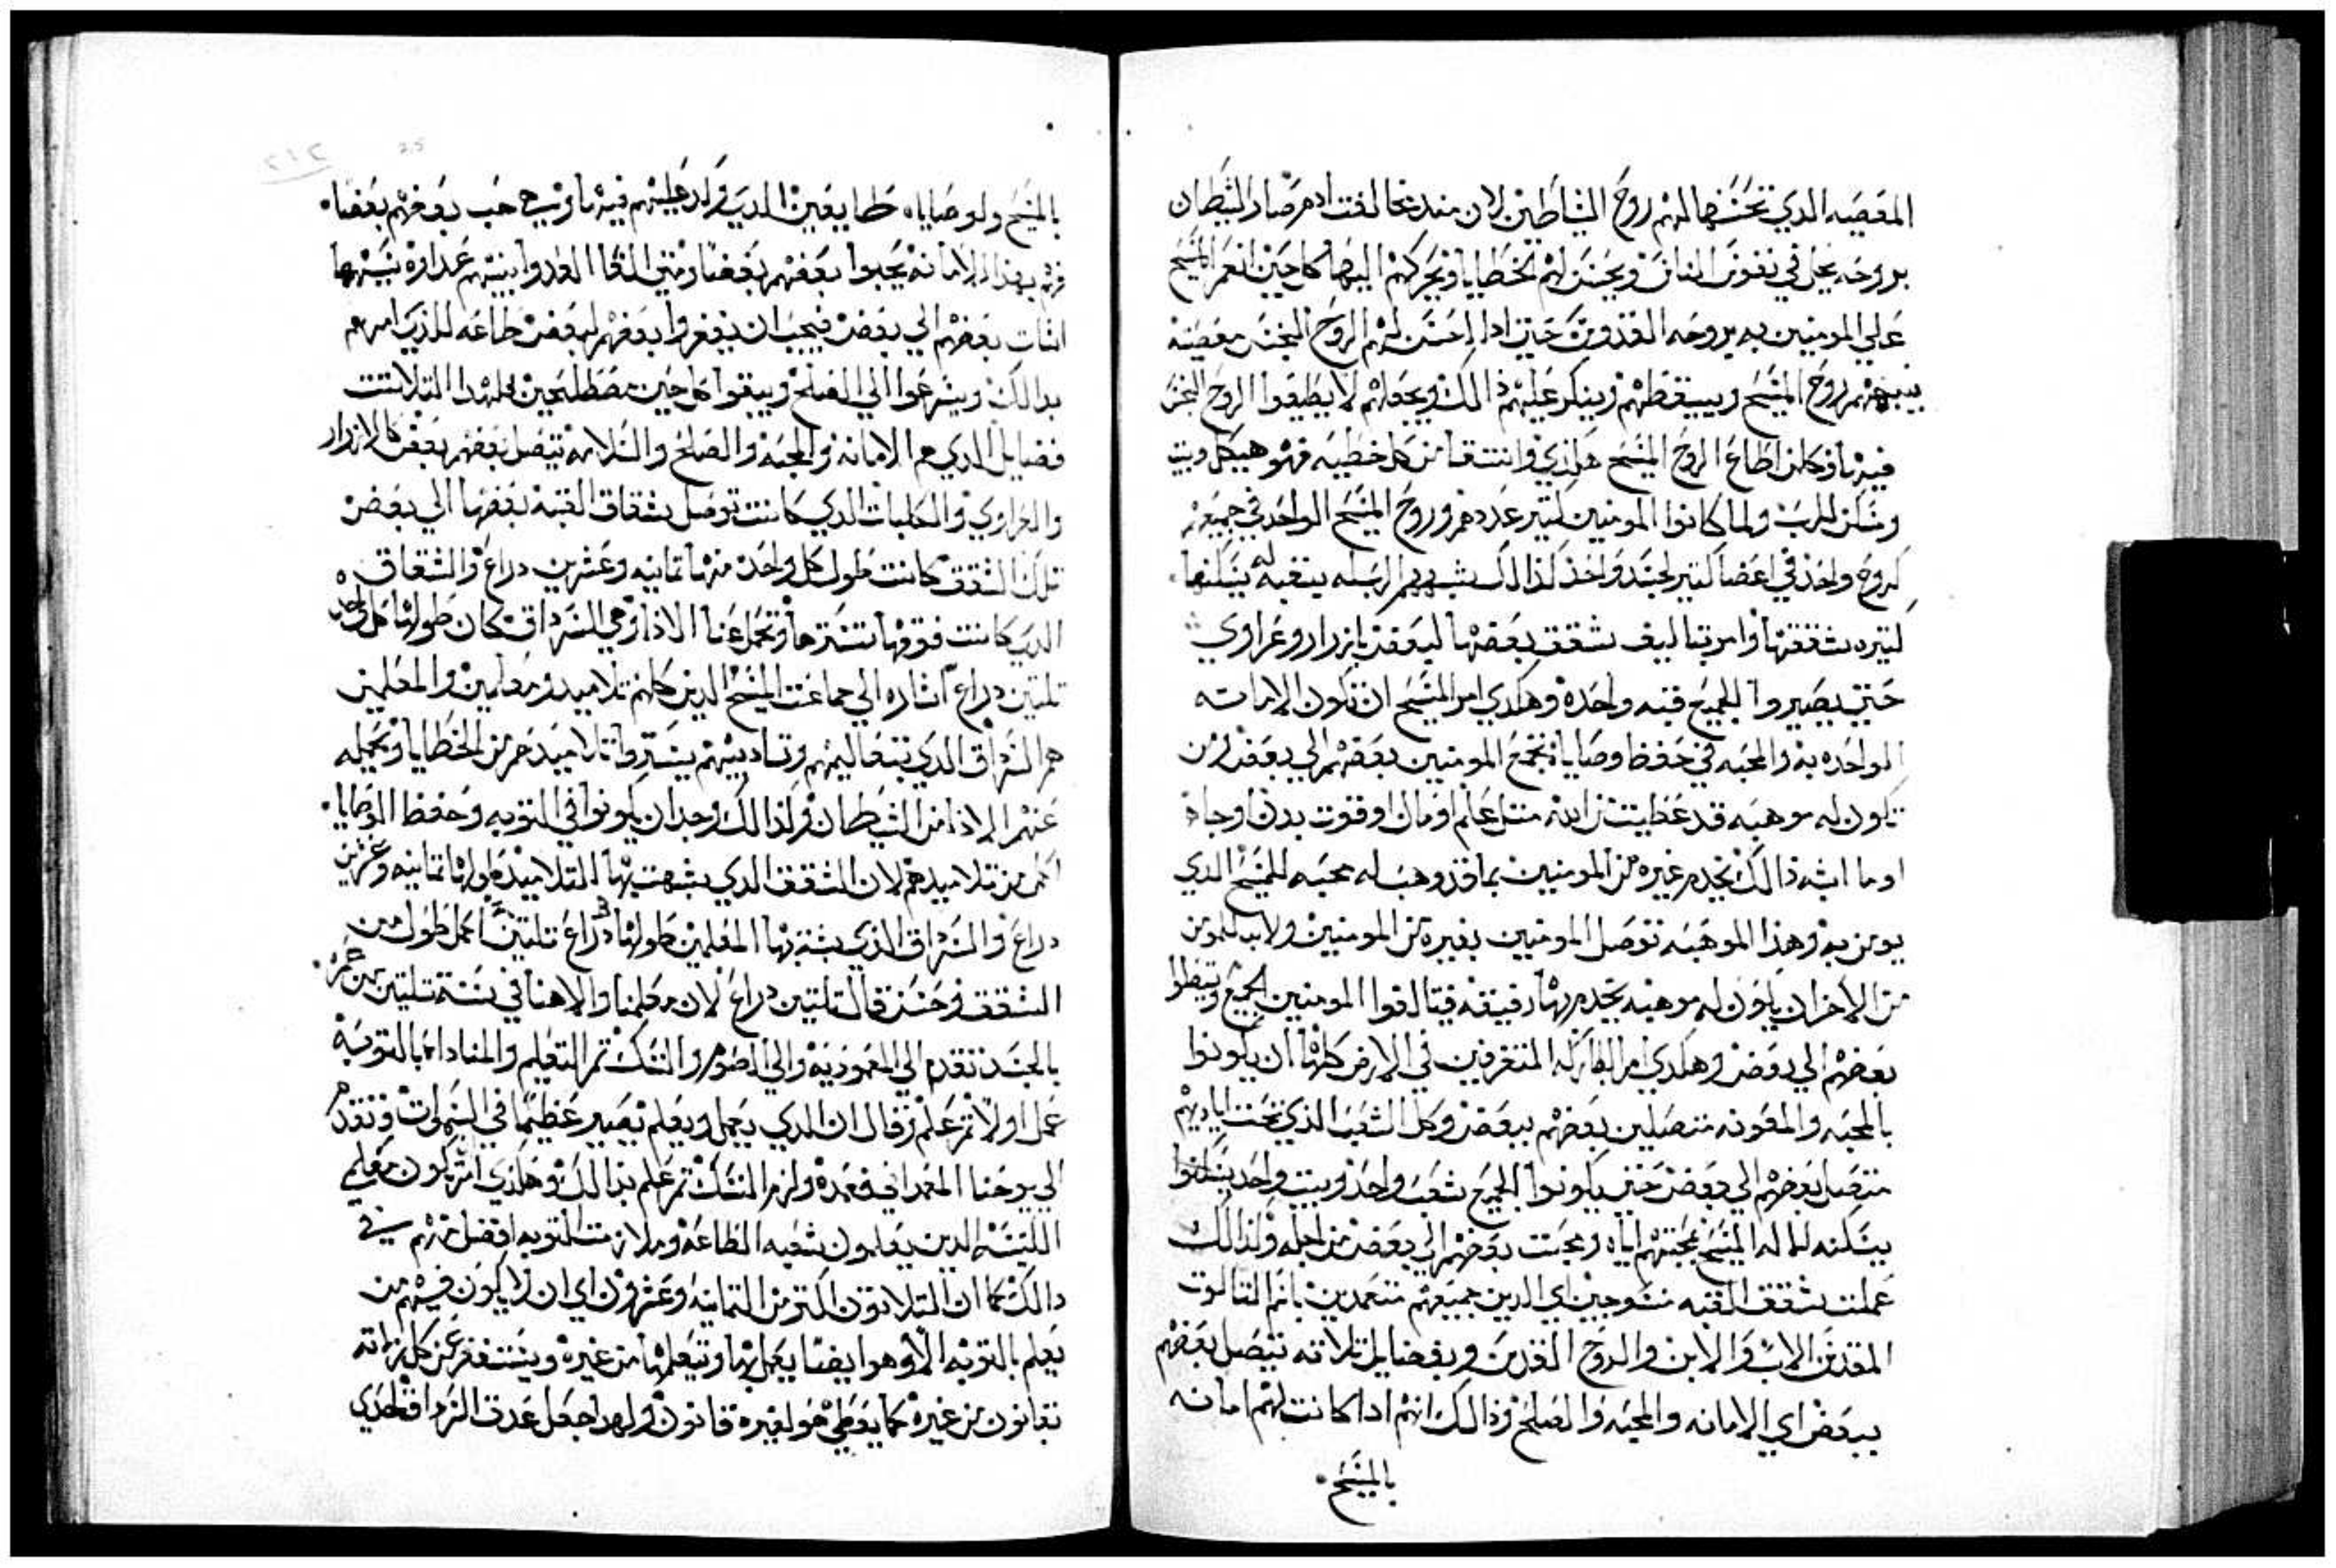 المعصيه الدي تحسنها لهم روح الشياطين لان مند مخالفت ادم صار الشيطان
بروحه يحل في نفوس الناس ويحسن لهم الخطايا ويحركهم اليها كل حين انعم المسيح
علي المومنين به بروحه القدوس حتي ادا احسن لهم الروح النجس معصيته
ينبههم روح المسيح ويسقطهم وينكر عليهم ذالك ويجعلهم لا يطيعوا الروح النجس
فيها وكلمن اطاع الروح المسيح هكذي وانتقا من كل خطيه فهو هيكل وبيت
ومسكن للرب ولما كانوا المومنين كتير عددهم وروح المسيح الواحد في جميعهم
كروح واحد في اعضا كتير لجسد واحد كذالك شبههم الرب له بقبه له يسكنها
كتيره شققها وامر بتاليف شقق بعضها لبعض بازرار وعراوي
حتي يصيروا الجميع قبه واحدة وهكدي امر المسيح ان تكون الامانه
الواحده به والمحبه في حفظ وصاياه تجمع المومنين بعضهم الي بعض لمن
تكون له موهبه قد عطيت من الله متل علم او مال او قوت بدن او جاه
او ما اشبه ذالك يخدم غيره من المومنين بما قد وهب له محبه للمسيح الدي
يومن به وهذا الموهبه توصل المومنين بغيره من المومنين ولابد للمومن
من الاخر ان يكون له موهبه يخدم بها رفيقه فيتالفوا المومنين الجميع
بعضهم الي بعض وهكدي امر البطاركه المتفرقين في الارض كلها ان يكونوا
بالمحبه والمعونه متصلين بعضهم ببعض وكل الشعب الذي تحت اياديهم
متصل بعضهم الي بعض حتي يكونوا الجميع شعب واحد وبيت واحد يسكنوا
يسكنه للاله المسيح بمحبتهم اياه ومحبت بعضهم الي بعض من اجله ولذالك
عملت شقق القبه منسوجين اي الدين جميعهم متعمدين باسم التالوت
المقدس الاب والابن والروح القدس وبفضايل تلاته تتصل بعضهم
ببعض اي الامانه والمحبه والصلح وذالك انهم ادا كانت لهم امانه
بالمسيح
بالمسيح ولوصاياه طايعين الدي وكد عليهم فيها وفي حب بعضهم بعضا
فهم بهذا الامانه يحبوا بعضهم بعضا ومتي القا العدوا بينهم عداوة بسبها
اسات بعضهم الي بعض فيجب ان يغفروا بعضهم لبعض طاعه للذي امرهم
بدالك ويسرعوا الي الصلح ويبقوا كل حين مصطلحين فلهدا التلاتت
فضايل الدي هم الامانه والمحبه والصلح والسلامه تتصل بعضهم ببعض كالازرار
والعراوي والكلبات الدي كانت توصل شقاق القبه بعضها الي بعض
تلك الشقق كانت طول كل واحده منها تمانيه وعشرين دراع والشقاق
الدي كانت فوقها تسترها وتحمل عنها الادا وهي السرداق كان طولها كل واحد
تلتين دراع اشاره الي جماعت المسيح الدين كلهم تلاميد ومعلمين والمعلمين
هم السرداق الدي بتعاليمهم وتاديبهم يستروا تلاميدهم من الخطايا وتحمله
عنهم الاذا من الشيطان ولذالك وجب ان يكونوا في التوبه وحفظ الوصايا
اكمل من تلاميدهم لان الشقق الدي شبهت بها التلاميد طولها تمانيه وعشرين
دراع والسرداق الذي شبه بها المعلمين طولها دراع تلتين اكمل طول من
الشقق وحسن قال تلتين دراع لان معلمنا والاهنا في سنة تلتين من عمره
بالجسد تقدم الي المعموديه والي الصوم والنسك تم التعليم والمناداه بالتوبه
عمل اولا تم علم وقال ان الدي يعمل ويعلم يصير عظيما في السموات وتقدم
الي يوحنا المعمدان وعمده ولزم النسك تم علم بدالك وهكذي امر تكون معلمي
الكنيسه الدين يعلمون شعبه الطاعه وملازمت التوبه افضل منهم في
دالك كما ان التلاتون اكتر من التمانيه وعشرون اي ان لا يكون فيهم من
يعلم بالتوبه الا وهو ايضا يعمل بها ويتعلمها من غيره ويستغفر عن كل زلاته
بقانون من غيره كما يعطي هو لغيره قانون ولهدا جعل عدت السرداق احدي